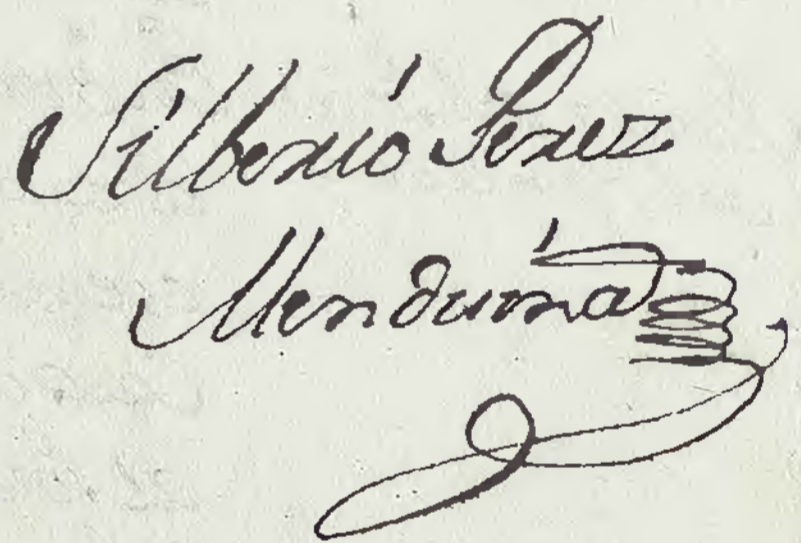 Silberio Perez
Menduiña